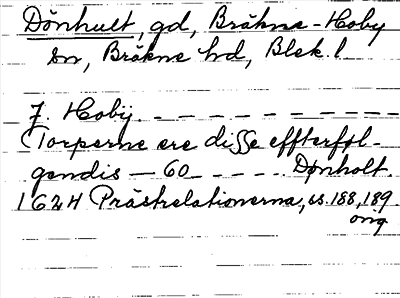 Dönhult, gd, Bräkne-Hoby
sn, Bräkne hd, Blek. l.
J. Hoby _ _ _ _ _ _ _ _ _ _
Torperne ere disse effterføl-
gendis — 60 _ _ _ _ _ Dønholt
1624 Prästrelationerna, ss. 188, 189
orig